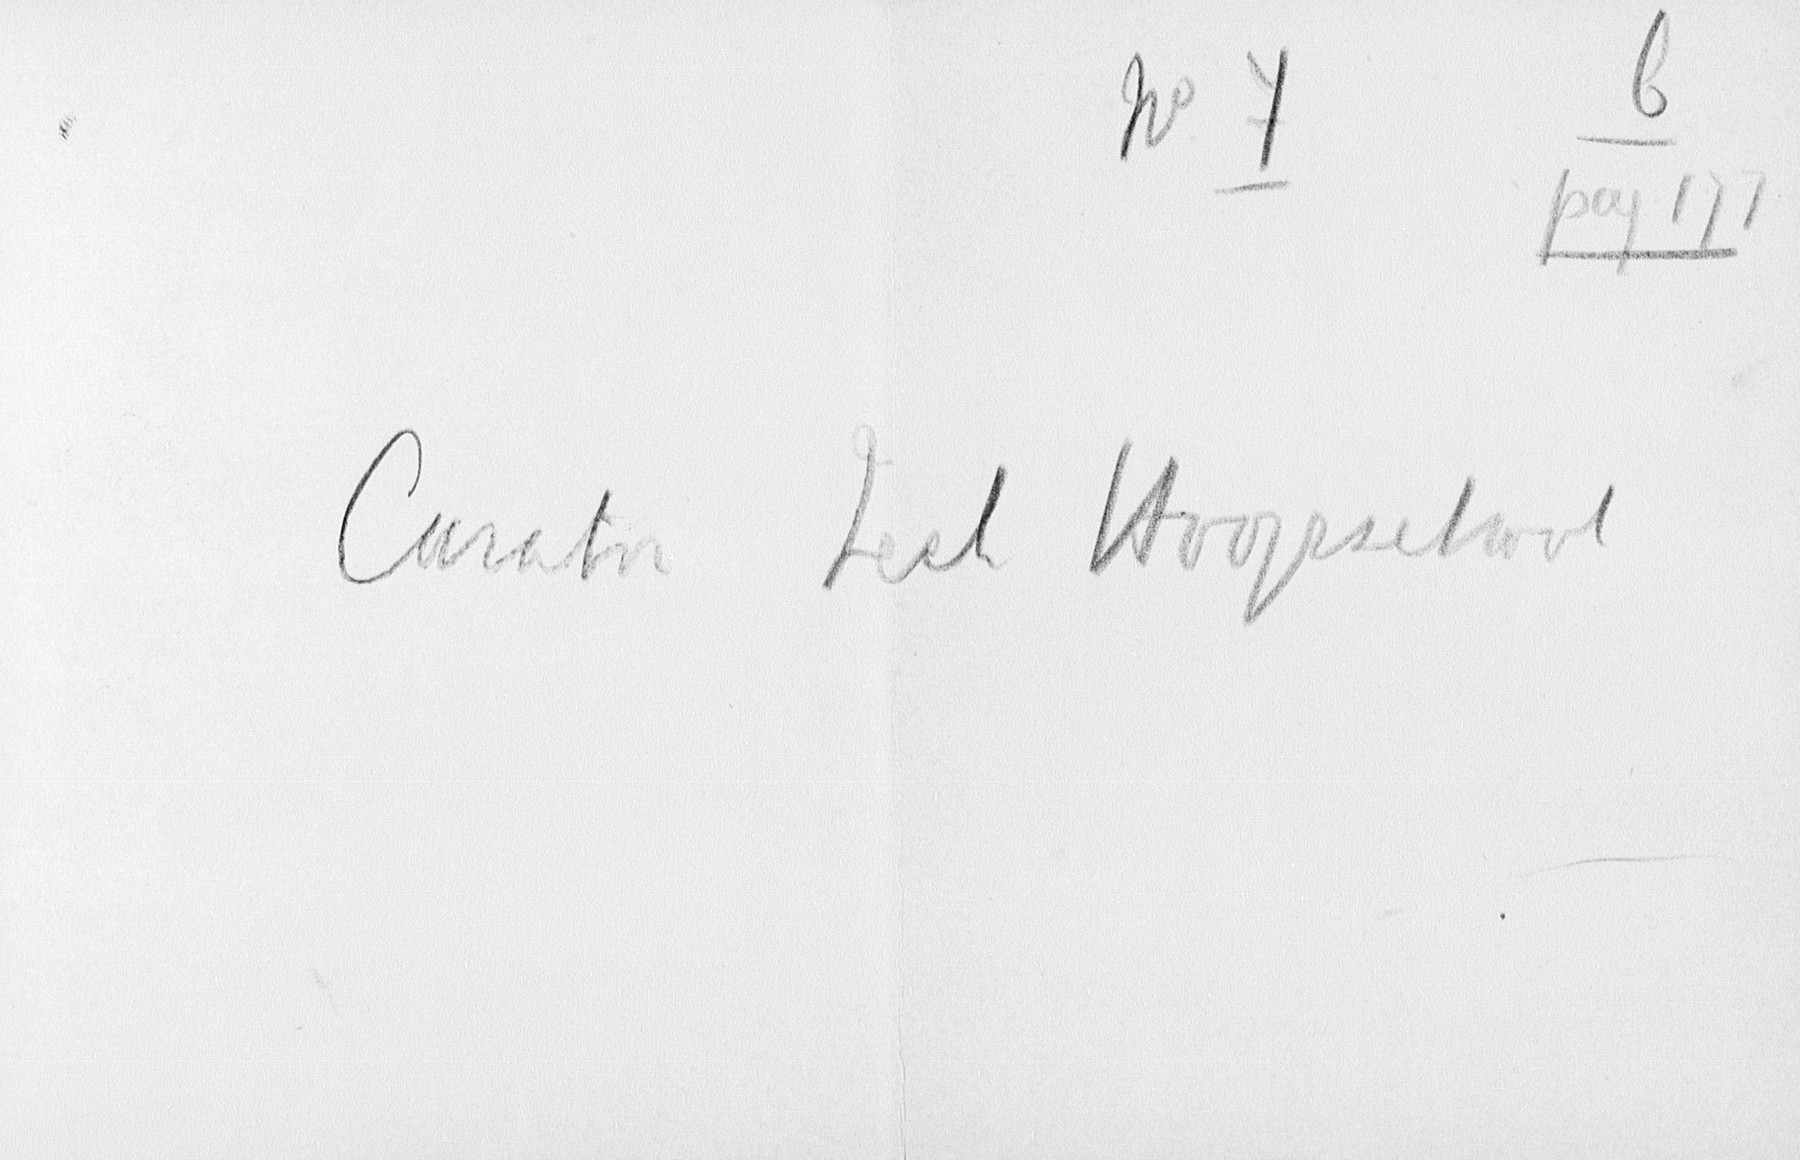 No 7
6
pag 177
Curator Tech Hoogeschool